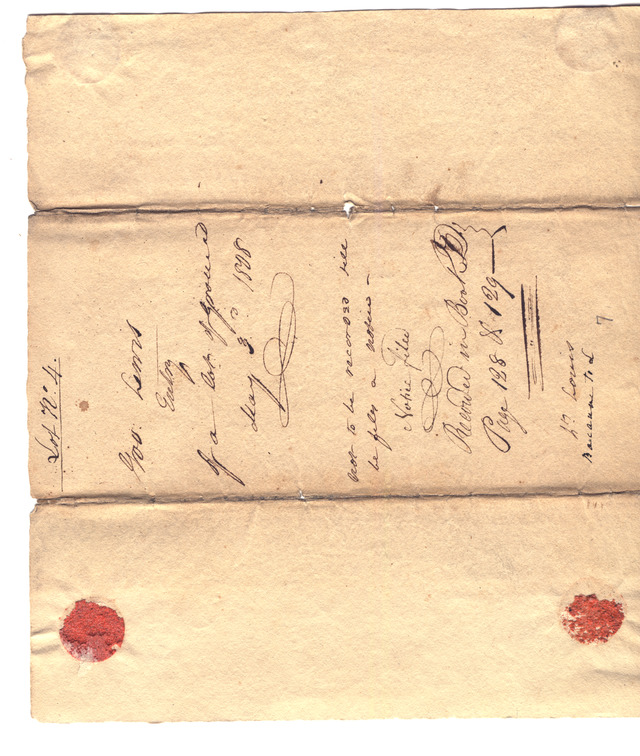 Lot No. 4.
Geo. Lewis
Entry
of a lot of Ground
May 3d 1808
not to be recorded till
he files a notice
Notice filed
Recorded in Book D
Page 128 & 129
St. Louis
7